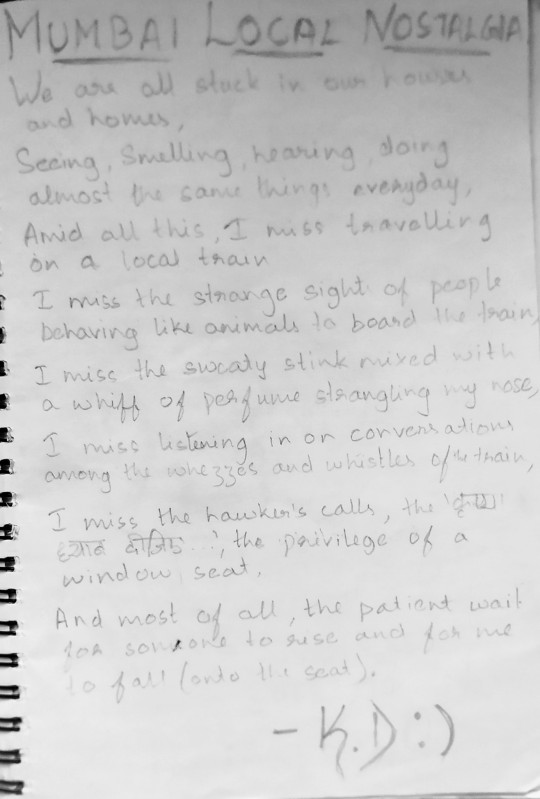 MUMBAI LOCAL NOSTALGIA
We are all stuck in our houses
and homes,
Seeing, Smelling, hearing, doing
almost the same things everyday,
Amid all this, I miss travelling
on a local train
I miss the strange sight of people
behaving like animals to board the train,
I miss the sweaty stink mixed with
a whiff of perfume strangling my nose,
I miss listening in on conversations
among the whezzes and whistles of the train,
I miss the hawker's calls, the 'कृपया
ध्यान दीजिए...', the privilege of a
window seat.
And most of all, the patient wait
for someone to rise and for me
to fall (onto the seat).
- K.D :)